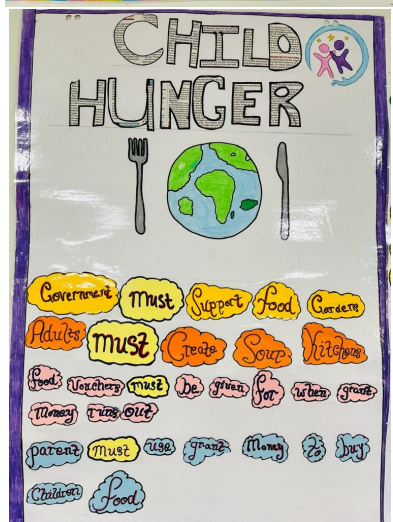 CHILD
HUNGER
Government must Support food Gardens
Adults must Create Soup Kitchens
food Vouchers must be given for when grant
Money runs out
parent must use grant Money to buy
Children food